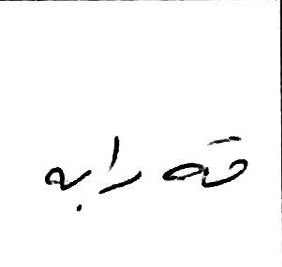 قه رابه